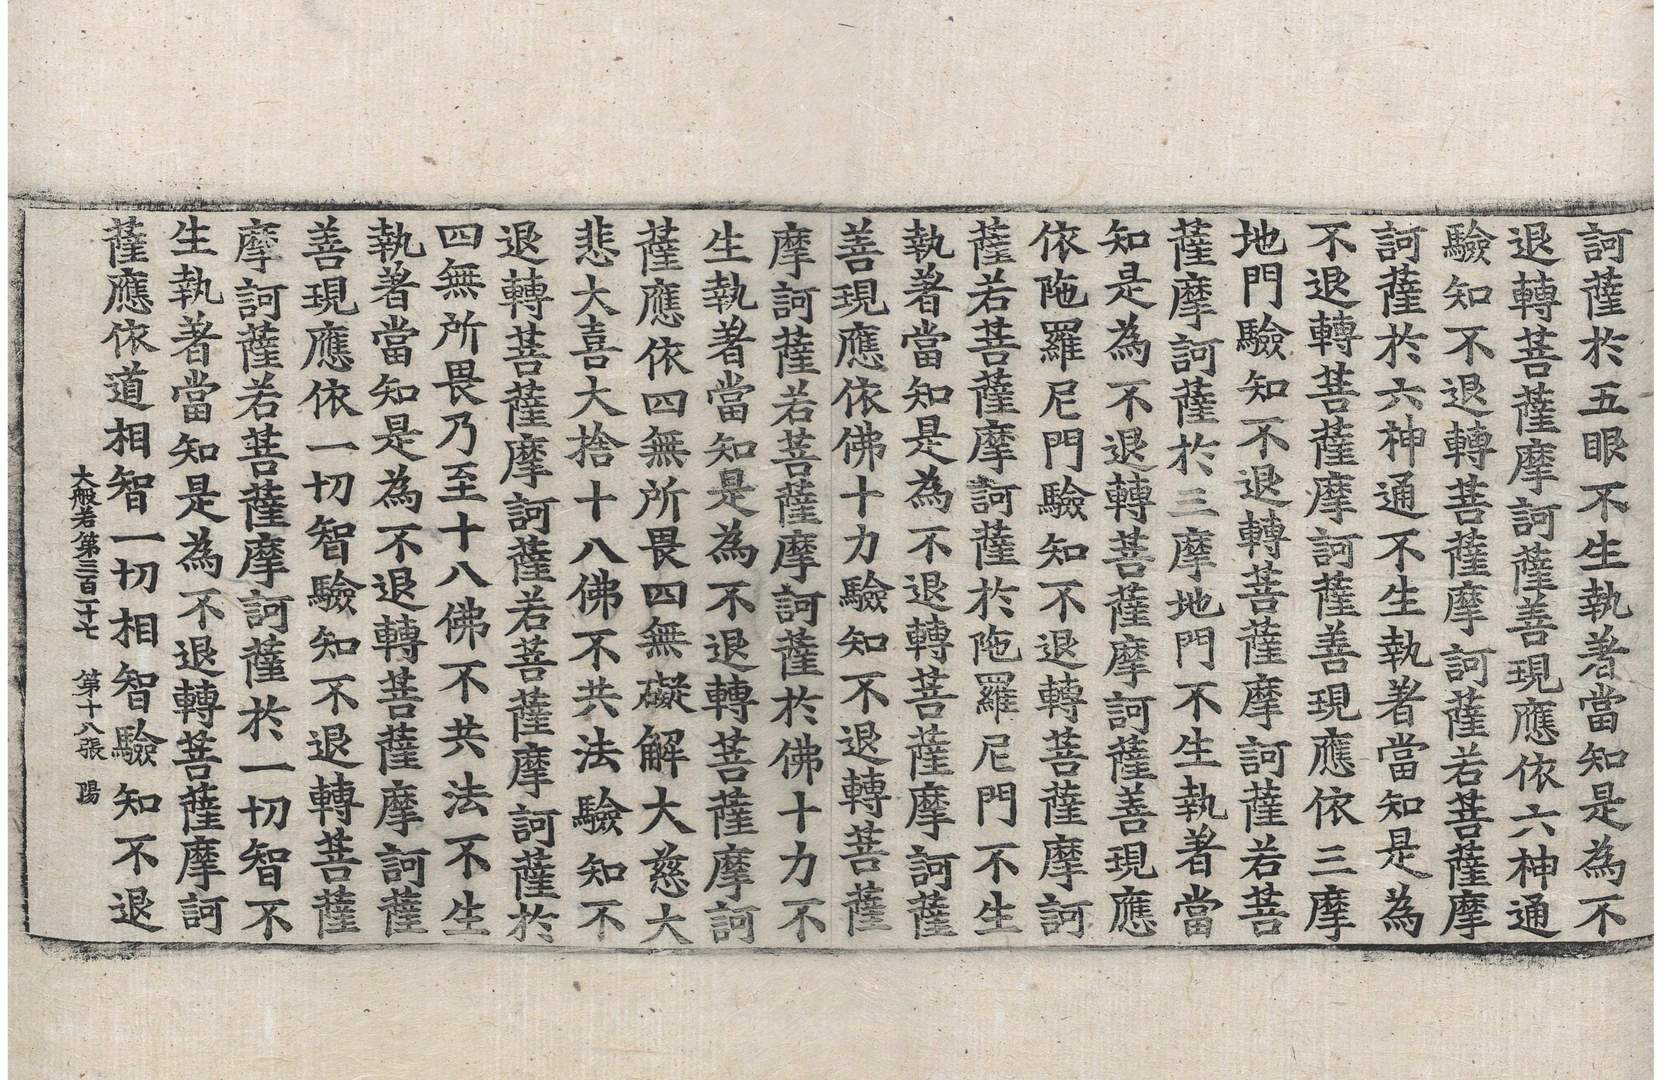 訶薩於五眼不生執著當知是為不
退轉菩薩摩訶薩善現應依六神通
驗知不退轉菩薩摩訶薩若菩薩摩
訶薩於六神通不生執著當知是為
不退轉菩薩摩訶薩善現應依三摩
地門驗知不退轉菩薩摩訶薩若菩
薩摩訶薩於三摩地門不生執著當
知是為不退轉菩薩摩訶薩善現應
依陁羅尼門驗知不退轉菩薩摩訶
薩若菩薩摩訶薩於陁羅尼門不生
執著當知是為不退轉菩薩摩訶薩
善現應依佛十力驗知不退轉菩薩
摩訶薩若菩薩摩訶薩於佛十力不
生執著當知是為不退轉菩薩摩訶
薩應依四無所畏四無礙解大慈大
悲大喜大捨十八佛不共法驗知不
退轉菩薩摩訶薩若菩薩摩訶薩於
四無所畏乃至十八佛不共法不生
執著當知是為不退轉菩薩摩訶薩
善現應依一切智驗知不退轉菩薩
摩訶薩若菩薩摩訶薩於一切智不
生執著當知是為不退轉菩薩摩訶
薩應依道相智一切相智驗知不退
大般若第三百二十七 第十八張 陽